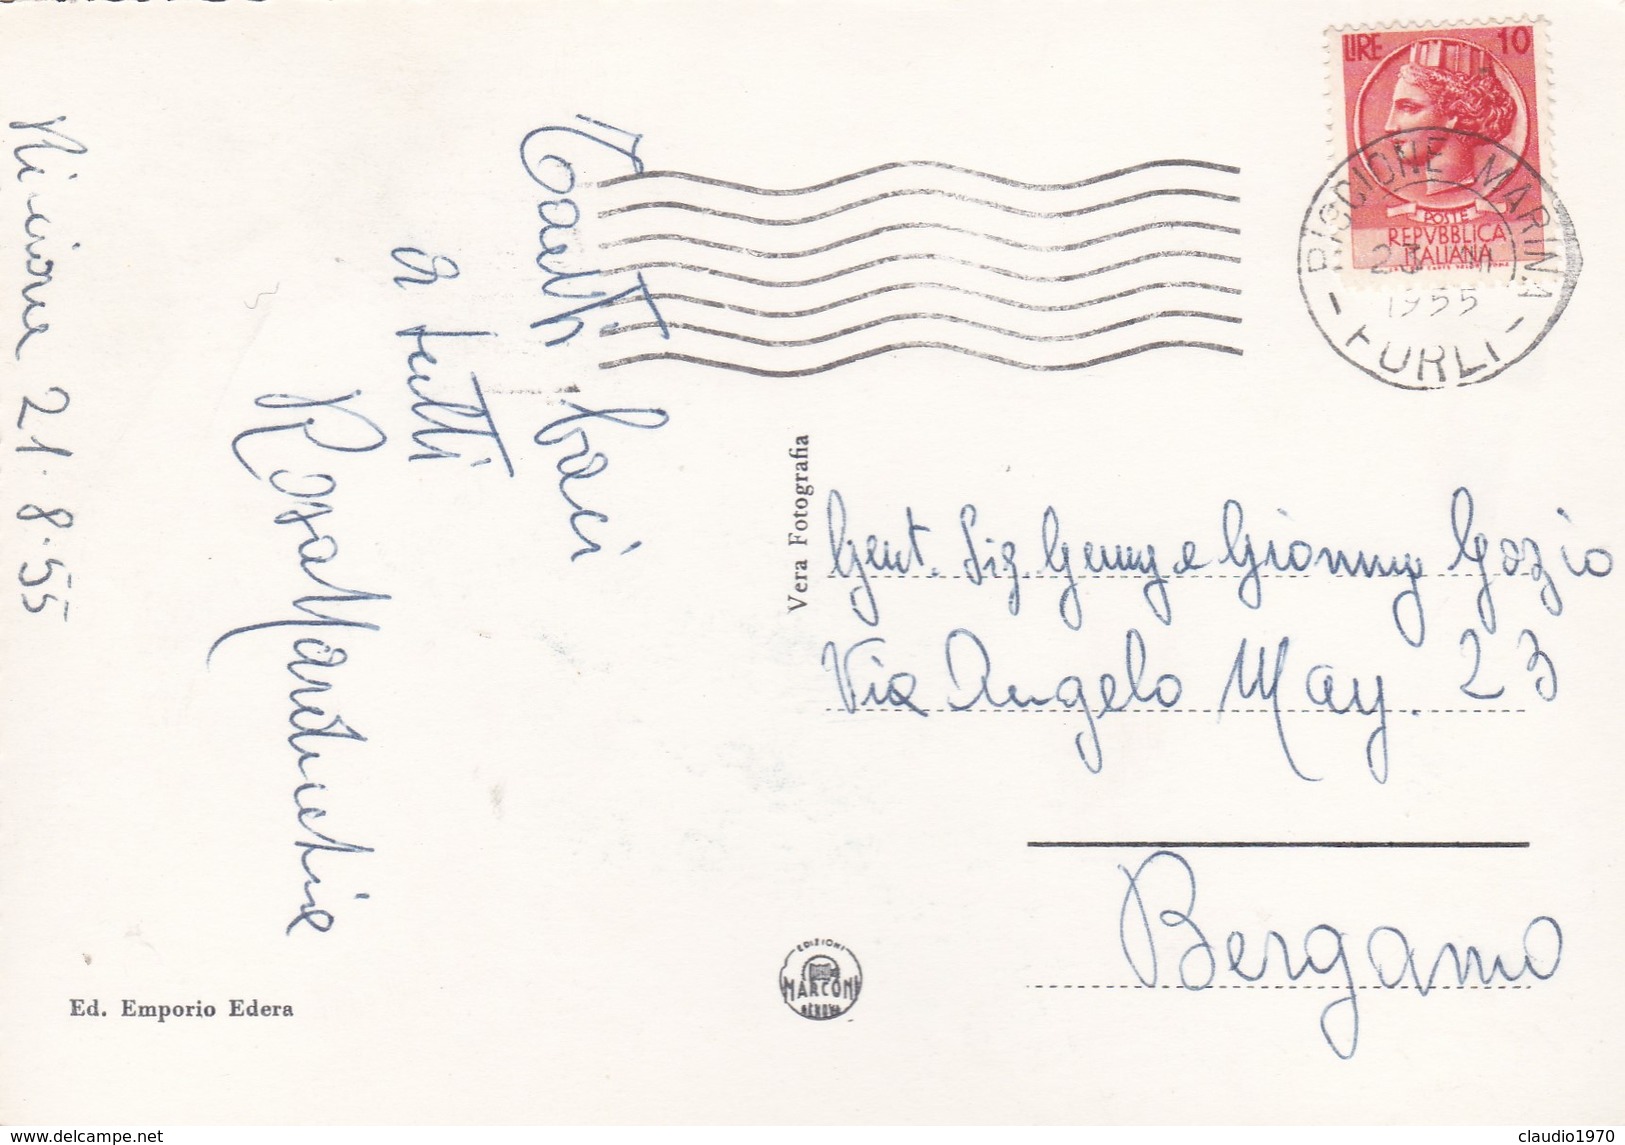 Riccione 21.8.55
Tanti baci
a tutti
Rosa
Ed. Emporio Edera
Vera Fotografia
LIRE 10
POSTE
REPVBBLICA
ITALIANA
RICCIONE MARINA
1955
- FORLI -
Gent. Sig. Gemy e Gianny Gozio
Via Angelo May. 23
Bergamo
EDIZIONI
MARCONI
GENOVA
claudio1970